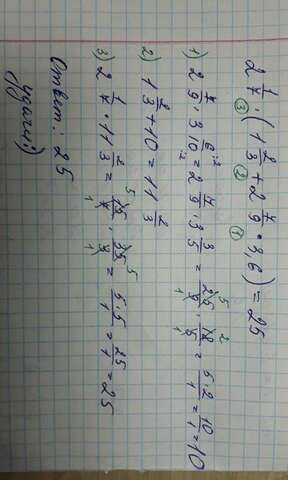 2 1/7 · (1 2/3 + 2 7/9 · 3,6) = 25
③ ② ①
1) 2 7/9 · 3 6:2/10:2 = 2 7/9 · 3 3/5 = 25/9 · 18/5 = 5·2/1 = 10/1 = 10
2) 1 2/3 + 10 = 11 2/3
3) 2 1/7 · 11 2/3 = 15/7 · 35/3 = 5·5/1 = 25/1 = 25
Ответ: 25
удачи)